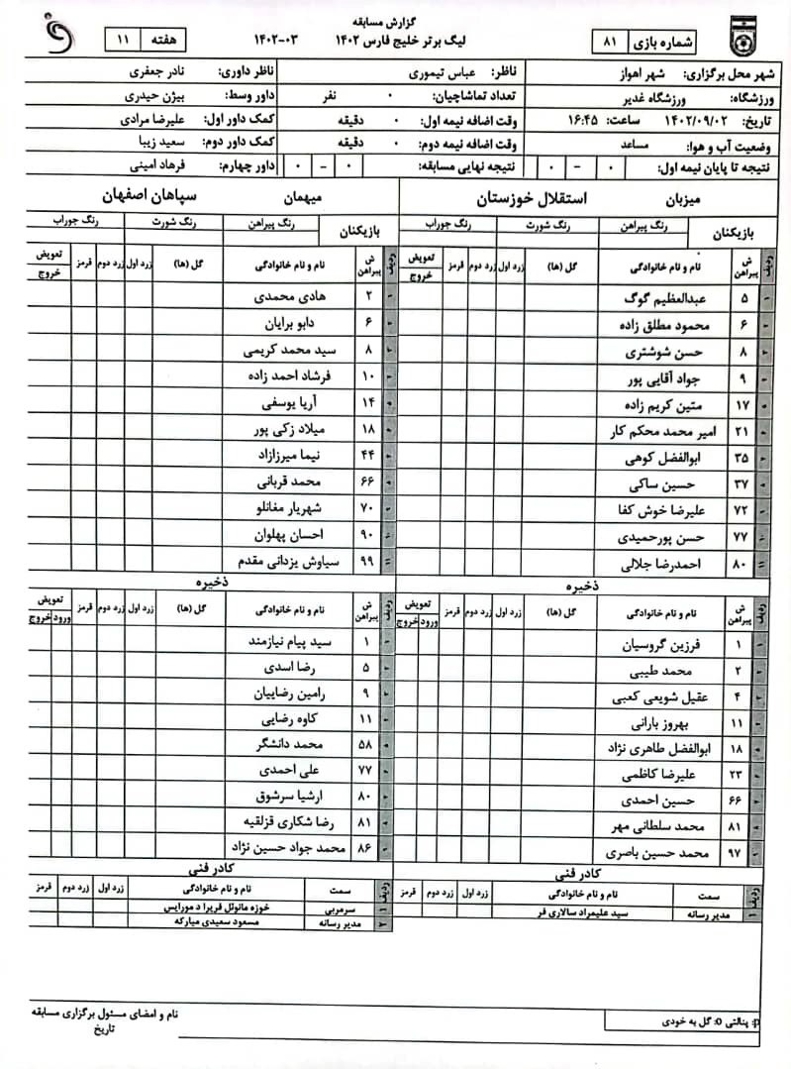 گزارش مسابقه
شماره بازی ۸۱
لیگ برتر خلیج فارس ۱۴۰۲ ۱۴۰۲-۰۳
هفته ۱۱
شهر محل برگزاری: شهر اهواز ناظر: عباس تیموری ناظر داوری: نادر جعفری
ورزشگاه: ورزشگاه غدیر تعداد تماشاچیان: ۰ نفر داور وسط: بیژن حیدری
تاریخ: ۱۴۰۲/۰۹/۰۲ ساعت: ۱۶:۴۵ وقت اضافه نیمه اول: ۰ دقیقه کمک داور اول: علیرضا مرادی
وضعیت آب و هوا: مساعد وقت اضافه نیمه دوم: ۰ دقیقه کمک داور دوم: سعید زیبا
نتیجه تا پایان نیمه اول: ۰ – ۰ نتیجه نهایی مسابقه: ۰ – ۰ داور چهارم: فرهاد امینی
میزبان استقلال خوزستان
بازیکنان رنگ پیراهن رنگ شورت رنگ جوراب
ردیف ش پیراهن نام و نام خانوادگی گل (ها) زرد اول زرد دوم قرمز تعویض خروج
۱ ۵ عبدالعظیم گوگ
۲ ۶ محمود مطلق زاده
۳ ۸ حسن شوشتری
۴ ۹ جواد آقایی پور
۵ ۱۷ متین کریم زاده
۶ ۲۱ امیر محمد محکم کار
۷ ۳۵ ابوالفضل کوهی
۸ ۳۷ حسین ساکی
۹ ۷۲ علیرضا خوش کفا
۱۰ ۷۷ حسن پورحمیدی
۱۱ ۸۰ احمدرضا جلالی
ذخیره
ردیف ش پیراهن نام و نام خانوادگی گل (ها) زرد اول زرد دوم قرمز تعویض ورود خروج
۱ ۱ فرزین گروسیان
۲ ۲ محمد طیبی
۳ ۴ عقیل شویعی کعبی
۴ ۱۱ بهروز بارانی
۵ ۱۸ ابوالفضل طاهری نژاد
۶ ۲۳ علیرضا کاظمی
۷ ۶۶ حسین احمدی
۸ ۸۱ محمد سلطانی مهر
۹ ۹۷ محمد حسین باصری
کادر فنی
ردیف سمت نام و نام خانوادگی زرد اول زرد دوم قرمز
۱ مدیر رسانه سید علیمراد سالاری فر
میهمان سپاهان اصفهان
بازیکنان رنگ پیراهن رنگ شورت رنگ جوراب
ردیف ش پیراهن نام و نام خانوادگی گل (ها) زرد اول زرد دوم قرمز تعویض خروج
۱ ۲ هادی محمدی
۲ ۶ دابو برایان
۳ ۸ سید محمد کریمی
۴ ۱۰ فرشاد احمد زاده
۵ ۱۴ آریا یوسفی
۶ ۱۸ میلاد زکی پور
۷ ۴۴ نیما میرزازاد
۸ ۶۶ محمد قربانی
۹ ۷۰ شهریار مغانلو
۱۰ ۹۰ احسان پهلوان
۱۱ ۹۹ سیاوش یزدانی مقدم
ذخیره
ردیف ش پیراهن نام و نام خانوادگی گل (ها) زرد اول زرد دوم قرمز تعویض ورود خروج
۱ ۱ سید پیام نیازمند
۲ ۵ رضا اسدی
۳ ۹ رامین رضاییان
۴ ۱۱ کاوه رضایی
۵ ۵۸ محمد دانشگر
۶ ۷۷ علی احمدی
۷ ۸۰ ارشیا سرشوق
۸ ۸۱ رضا شکاری قزلقیه
۹ ۸۶ محمد جواد حسین نژاد
کادر فنی
ردیف سمت نام و نام خانوادگی زرد اول زرد دوم قرمز
۱ سرمربی خوزه مانوئل فریرا د مورایس
۲ مدیر رسانه مسعود سعیدی مبارکه
p: پنالتی o: گل به خودی
نام و امضای مسئول برگزاری مسابقه
تاریخ